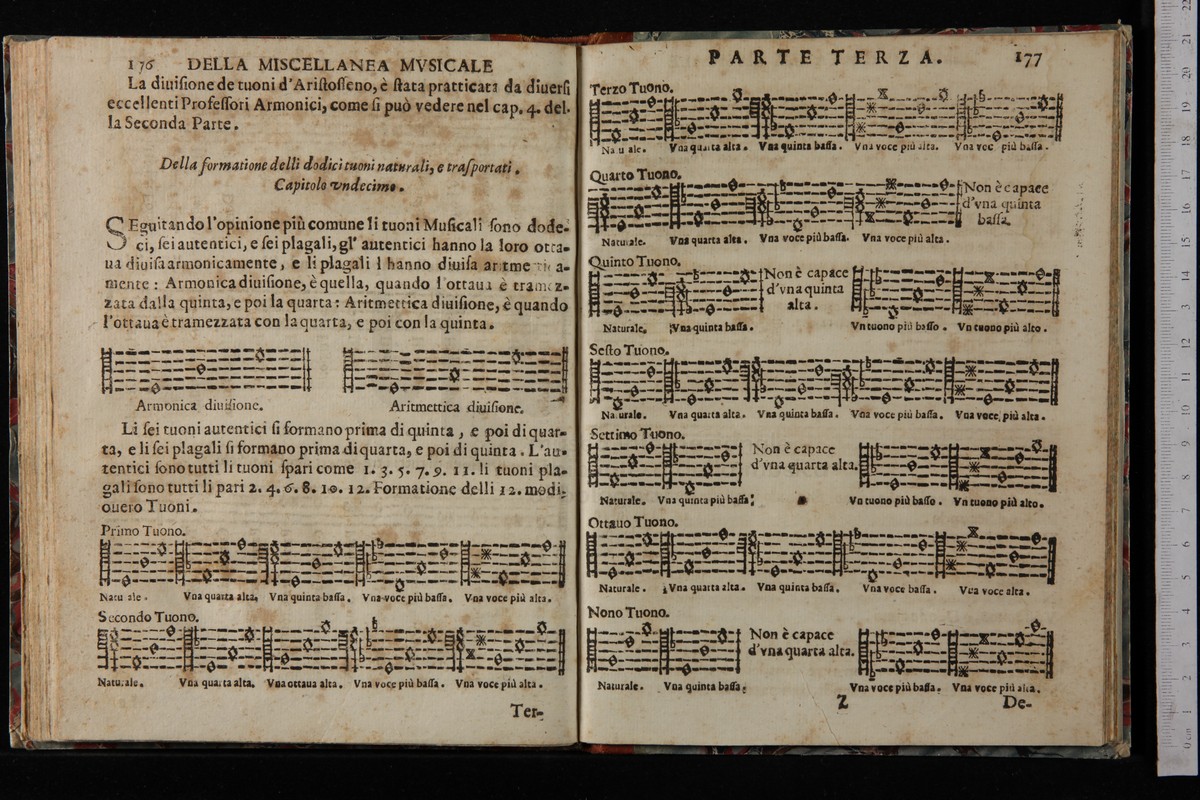 176 DELLA MISCELLANEA MVSICALE
La diuiſione de tuoni d'Ariſtoſſeno, è ſtata pratticata da diuerſi
eccellenti Profeſſori Armonici, come ſi può vedere nel cap. 4. del.
la Seconda Parte.
Della formatione delli dodici tuoni naturali, e traſportati.
Capitolo vndecimo.
SEguitando l'opinione più comune li tuoni Muſicali ſono dode-
ci, ſei autentici, e ſei plagali, gl' autentici hanno la loro otta-
ua diuiſa armonicamente, e li plagali l hanno diuiſa aritmetica-
mente: Armonica diuiſione, è quella, quando l'ottaua è tramez-
zata dalla quinta, e poi la quarta: Aritmettica diuiſione, è quando
l'ottaua è tramezzata con la quarta, e poi con la quinta.
Armonica diuiſione. Aritmettica diuiſione.
Li ſei tuoni autentici ſi formano prima di quinta, e poi di quar-
ta, e li ſei plagali ſi formano prima di quarta, e poi di quinta. L'au-
tentici ſono tutti li tuoni ſpari come 1. 3. 5. 7. 9. 11. li tuoni pla-
gali ſono tutti li pari 2. 4. 6. 8. 10. 12. Formatione delli 12. modi,
ouero Tuoni.
Primo Tuono.
Natu ale. Vna quarta alta. Vna quinta baſſa. Vna voce più baſſa. Vna voce più alta.
Secondo Tuono.
Naturale. Vna quarta alta. Vna ottaua alta. Vna voce più baſſa. Vna voce più alta.
Ter-
PARTE TERZA. 177
Terzo Tuono.
Na u ale. Vna quarta alta. Vna quinta baſſa. Vna voce più alta. Vna voc più baſſa.
Quarto Tuono.
Non è capace
d'vna quinta
baſſa.
Naturale. Vna quarta alta. Vna voce più baſſa. Vna voce più alta.
Quinto Tuono.
Non è capace
d'vna quinta
alta.
Naturale. Vna quinta baſſa. Vn tuono più baſſo. Vn tuono più alto.
Seſto Tuono.
Na urale. Vna quarta alta. Vna quinta baſſa. Vna voce più baſſa. Vna voce più alta.
Settimo Tuono.
Non è capace
d'vna quarta alta.
Naturale. Vna quinta più baſſa. Vn tuono più baſſo. Vn tuono più alto.
Ottauo Tuono.
Naturale. Vna quarta alta. Vna quinta baſſa. Vna voce baſſa. Vna voce alta.
Nono Tuono.
Non è capace
d'vna quarta alta.
Naturale. Vna quinta baſſa. Vna voce più baſſa. Vna voce più alta.
Z De-
0 cm 1 2 3 4 5 6 7 8 9 10 11 12 13 14 15 16 17 18 19 20 21 22